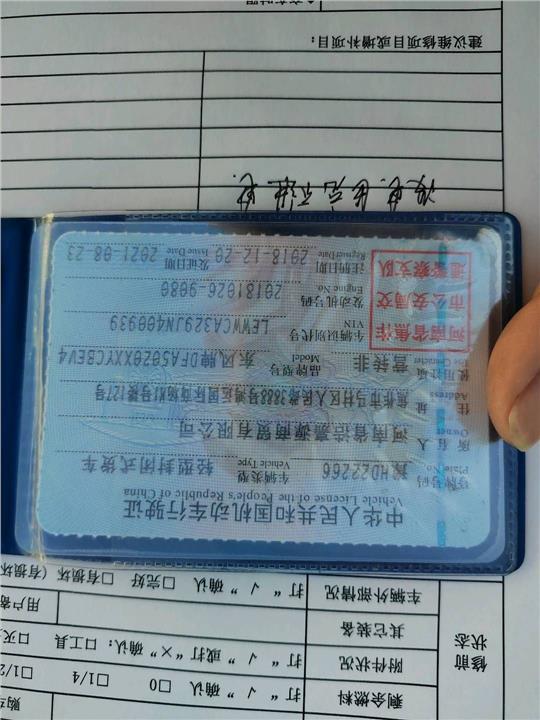 修前状态
剩余燃料 打“√”确认 □0 □1/4 □1/2
附件状况 打“√”或打“×”确认：□工具 □灭
其它装备
车辆外部情况 打“√”确认 □完好 □有损坏(有损坏
中华人民共和国机动车行驶证
Vehicle License of the People's Republic of China
号牌号码 豫HD22266 车辆类型 轻型封闭式货车
Plate No. Vehicle Type
所有人 河南省 商贸有限公司
Owner
住址 焦作市马村区人民路3888号 国际 号楼127号
Address
使用性质 营转非 品牌型号 东风牌DFA5020XXYYCBEV4
Use Character Model
河南省焦作市公安局交通警察支队
车辆识别代号 LEWWCA329JN400939
VIN
发动机号码 20181026-9080
Engine No.
注册日期 2018-12-20 发证日期 2021-08-23
Register Date Issue Date
建议维修项目或增补项目：